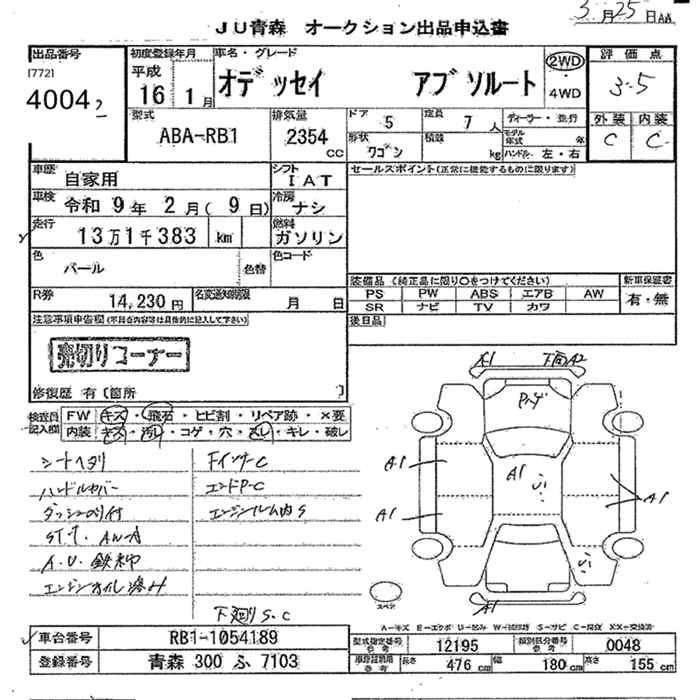 3月25日AA
JU青森 オークション出品申込書
出品番号 初度登録年月 車名・グレード 評価点
[772] 平成 2WD
4004 16 1月 オデッセイ アブソルート ・4WD 3.5
型式 排気量 ドア 5 定員 7人 ディーラー・並行 外装 内装
ABA-RB1 2354 CC 形状 ワゴン 積載 kg モデル年式 年 ハンドル 左・右 C C
車歴 自家用 シフト IAT セールスポイント(正常に機能するものに限ります)
車検 令和 9年 2月(9日) 冷房 ナシ
走行 13万1千383 km 燃料 ガソリン
色 パール 色替 色コード
装備品 (純正品に限り○をつけてください) 新車保証書
R券 14,230円 名変通知期限 月 日 PS PW ABS エアB AW 有・無
SR ナビ TV カワ
注意事項申告欄(不具合内容等は具体的に記入して下さい) 後日品
売切りコーナー
修復歴 有[箇所 ]
検査員記入欄 FW キズ・飛石・ヒビ割・リペア跡・×要
内装 キズ・汚れ・コゲ・穴・スレ・キレ・破し
A1 下面A2
シートヘタリ FインナーC
ハンドルカバー エンドP-C
エンジンルーム内S
A1 A1
A1 A1
下廻りS.C
A1
スペア
A=キズ E=エクボ U=凹み W=補修跡 S=サビ C=腐食 XX=交換済
車台番号 RB1-1054189 型式指定番号 参考 12195 類別区分番号 参考 0048
登録番号 青森 300 ふ 7103 長さ 476 cm 幅 180 cm 高さ 155 cm